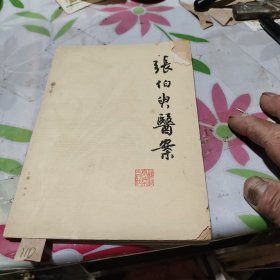 張伯臾醫案
110